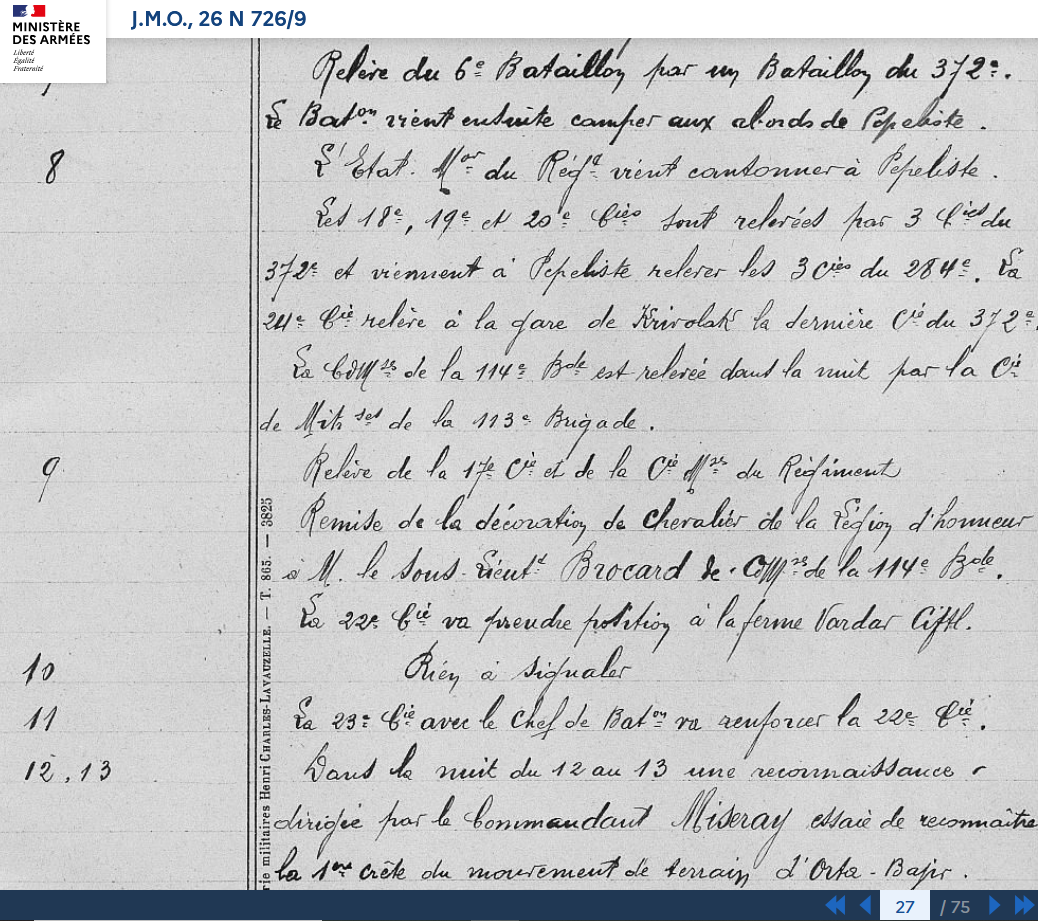 MINISTÈRE
DES ARMÉES
Liberté
Égalité
Fraternité
J.M.O., 26 N 726/9
Relève du 6e Bataillon par un Bataillon du 372e.
Le Baton vient ensuite camper aux abords de Pepeliste.
8 L'Etat. Mor du Régt vient cantonner à Pepeliste.
Les 18e, 19e et 20e Cies sont relevées par 3 Cies du
372e et viennent à Pepeliste relever les 3 Cies du 284e. La
24e Cie relève à la gare de Krivolak la dernière Cie du 372e.
La CdMses de la 114e Bde est relevée dans la nuit par la Cie
de Mitses de la 113e Brigade.
9 Relève de la 17e Cie et de la Cie Mses du Régiment
Remise de la décoration de chevalier de la Légion d'honneur
à M. le Sous-Lieutt Brocard de CdMses de la 114e Bde.
La 22e Cie va prendre position à la ferme Vardar Ciftl.
10 Rien à signaler
11 La 23e Cie avec le Chef de Baton va renforcer la 22e Cie.
12, 13 Dans la nuit du 12 au 13 une reconnaissance
dirigée par le Commandant Miseray essaie de reconnaître
la 1ère crête du mouvement de terrain d'Orta-Bajir.
rie militaires Henri CHARLES-LAVAUZELLE. — T. 865. — 3825
27 / 75